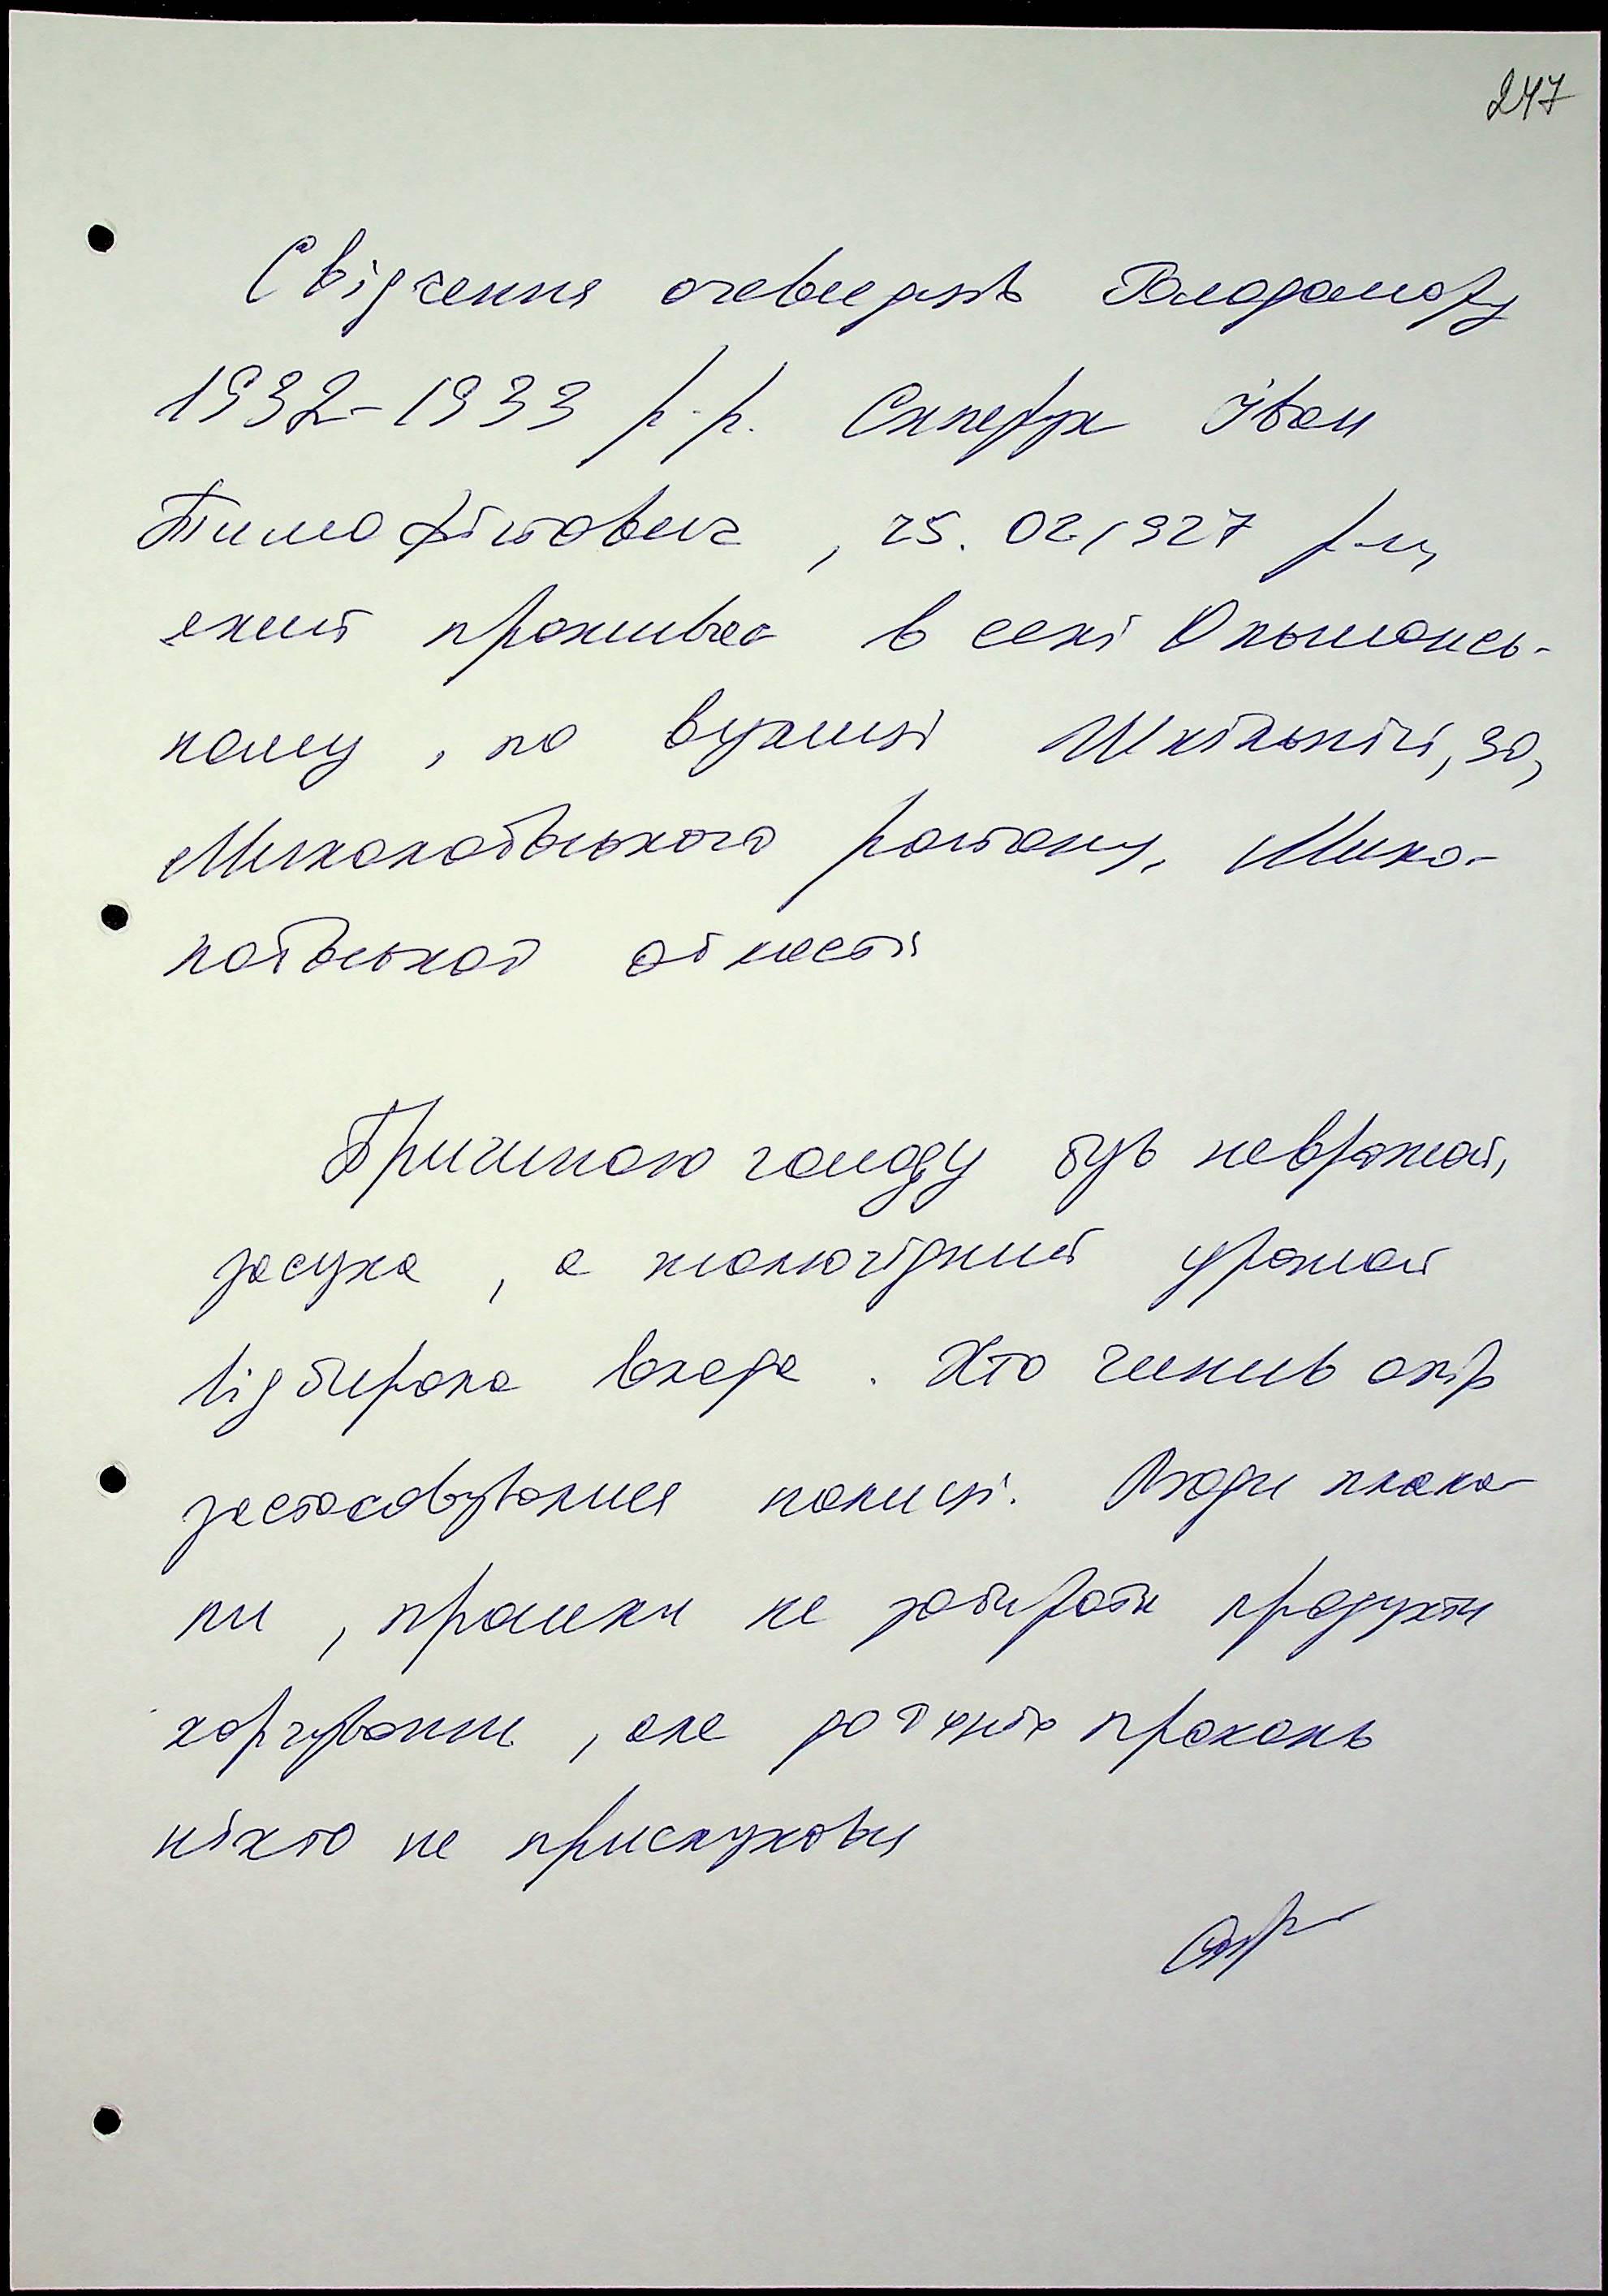 247
Свідчення очевидців Голодомору
1932-1933 р.р. Скперук Іван
Тимофійович, 25.02.1927 р.н,
який проживає в селі Ольшансь-
кому, по вулиці Шкільній, 30,
Миколаївського району, Мико-
лаївської області
Причиною голоду був неврожай,
засуха, а торічний урожай
відбирала влада. Хто чинив опір
застосовувалися палиці. Люди плака-
ли, прохали не забирати продукти
харчування, але до їхніх прохань
ніхто не прислухався